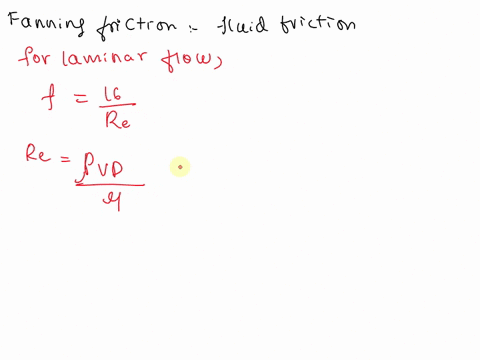 Fanning friction :- fluid friction
for laminar flow,
f = 16/Re
Re = ρVD/μ